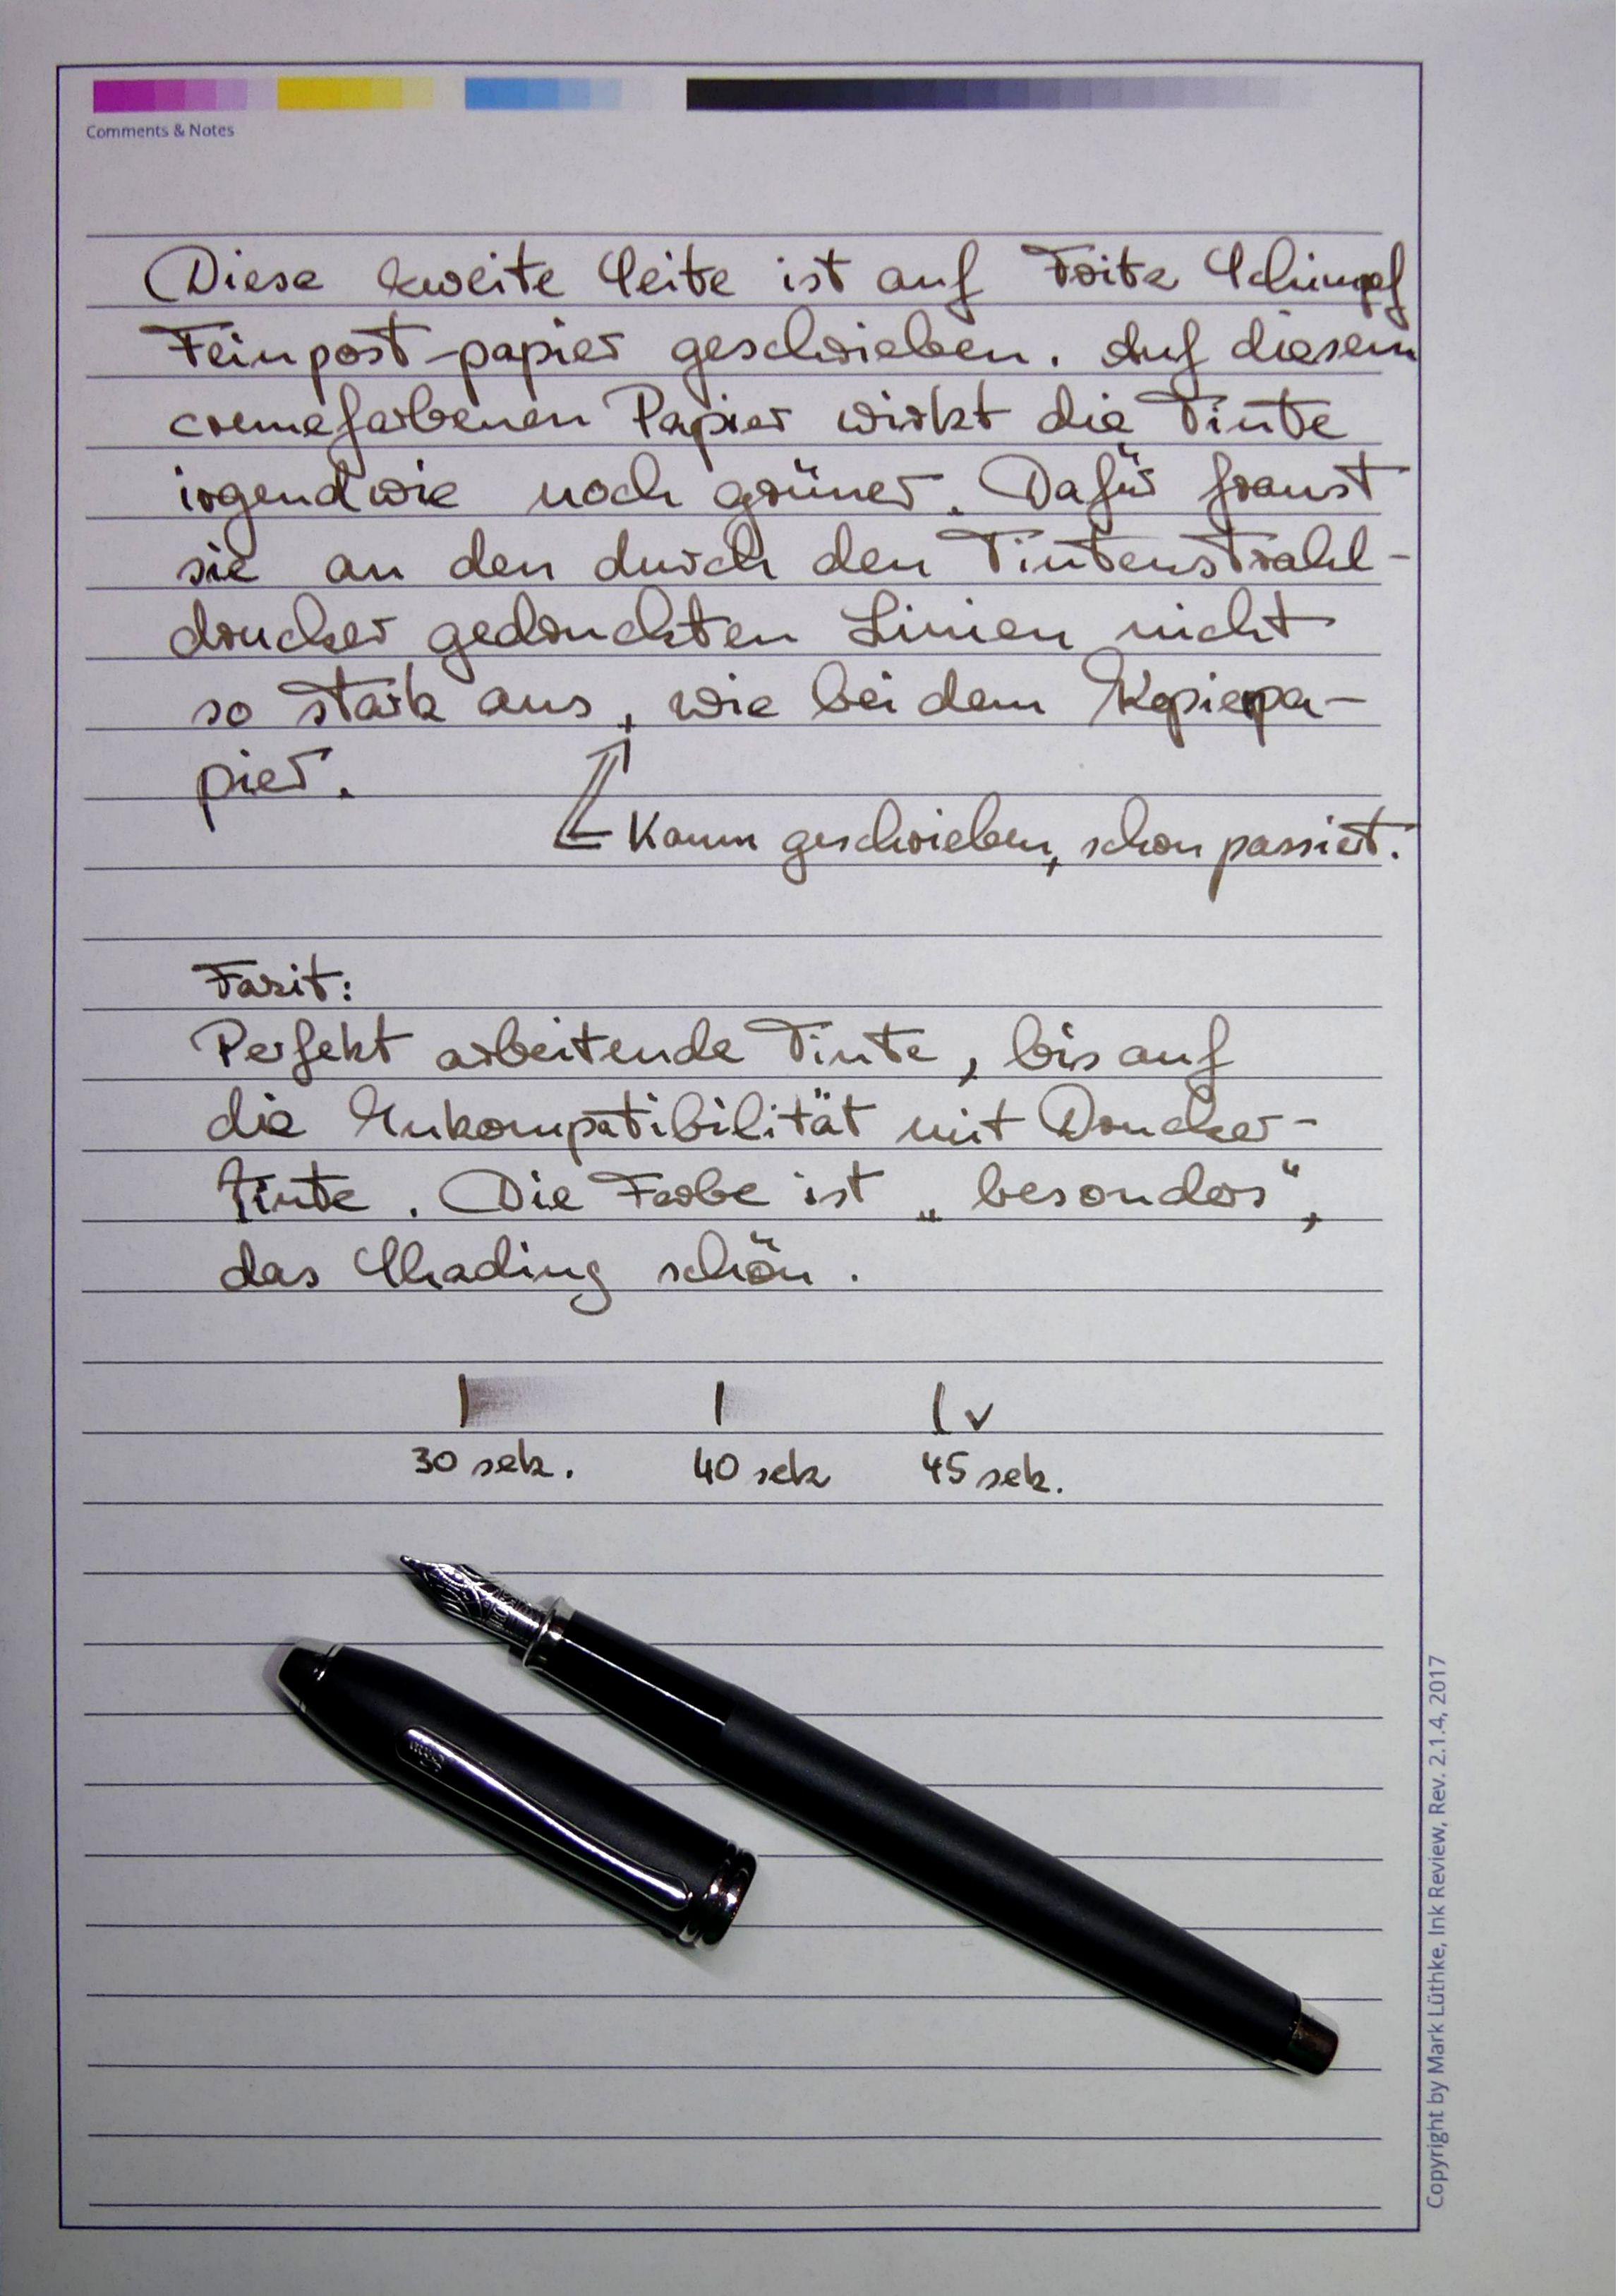 Comments & Notes
Diese zweite Seite ist auf Fritz Schimpf
Feinpost-papier geschrieben. Auf diesem
cremefarbenen Papier wirkt die Tinte
irgendwie noch grüner. Dafür franst
sie an den durch den Tintenstrahl-
drucker gedruckten Linien nicht
so stark aus, wie bei dem Kopierpa-
pier.
Kaum geschrieben, schon passiert.
Fazit:
Perfekt arbeitende Tinte, bis auf
die Inkompatibilität mit Drucker-
tinte. Die Farbe ist „besonders“,
das Shading schön.
30 sek. 40 sek 45 sek.
Copyright by Mark Lüthke, Ink Review, Rev. 2.1.4, 2017